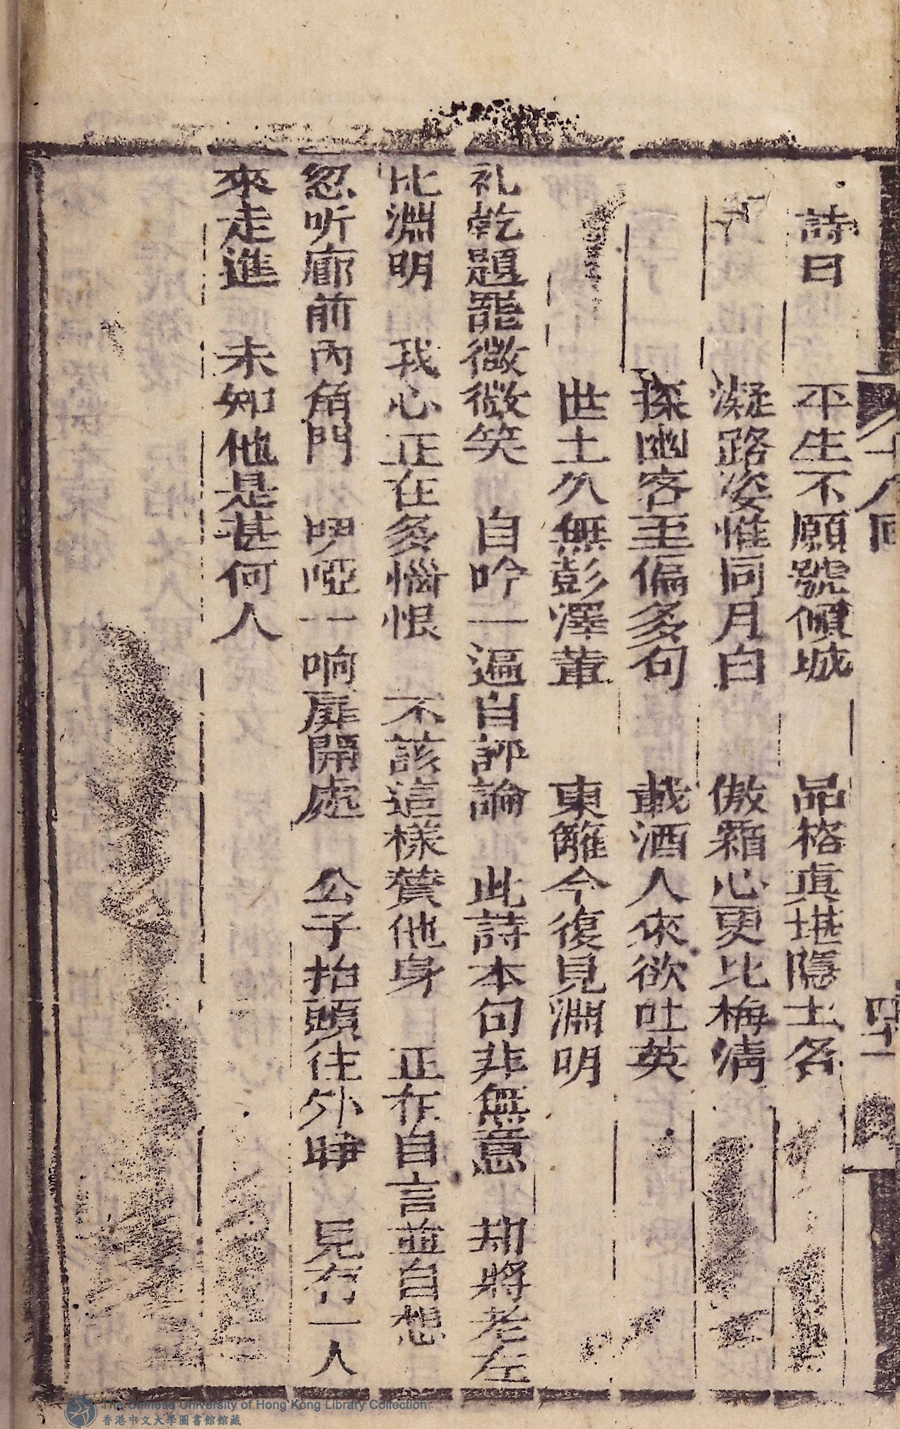 第十八回
四十一
詩曰 平生不願號傾城 品格真堪隱士名
凝路姿惟同月白 傲霜心更比梅清
探幽客至偏多句 載酒人來欲吐英
世上久無彭澤輩 東籬今復見淵明
礼乾題罷微微笑 自吟一遍自評論 此詩本句非無意 却將老左
比淵明 我心正在多惱恨 不該這樣贊他身 正在自言並自想
忽听廊前內角門 吚啞一响扉開處 公子抬頭往外睜 見冇一人
來走進 未知他是甚何人
The Chinese University of Hong Kong Library Collection
香港中文大學圖書館館藏